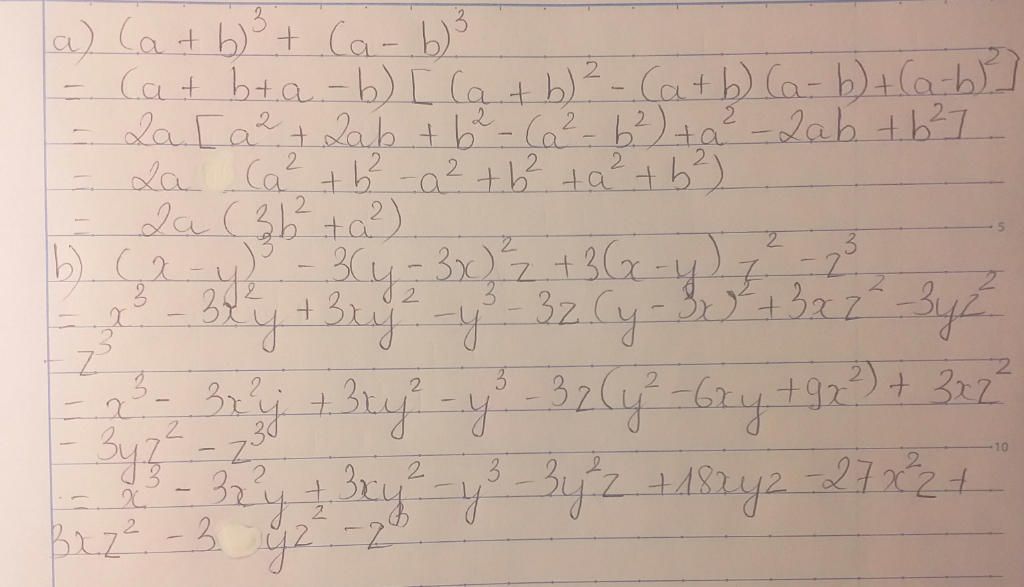 a) (a + b)³ + (a - b)³
= (a + b + a - b) [(a + b)² - (a + b) (a - b) + (a - b)²]
= 2a [a² + 2ab + b² - (a² - b²) + a² - 2ab + b²]
= 2a (a² + b² - a² + b² + a² + b²)
= 2a (3b² + a²)
5
b) (x - y)³ - 3(y - 3x)²z + 3(x - y) z² - z³
= x³ - 3x²y + 3xy² - y³ - 3z (y - 3x)² + 3xz² - 3yz²
- z³
= x³ - 3x²y + 3xy² - y³ - 3z(y² - 6xy + 9x²) + 3xz²
- 3yz² - z³
10
= x³ - 3x²y + 3xy² - y³ - 3y²z + 18xyz - 27x²z +
3xz² - 3 yz² - z³